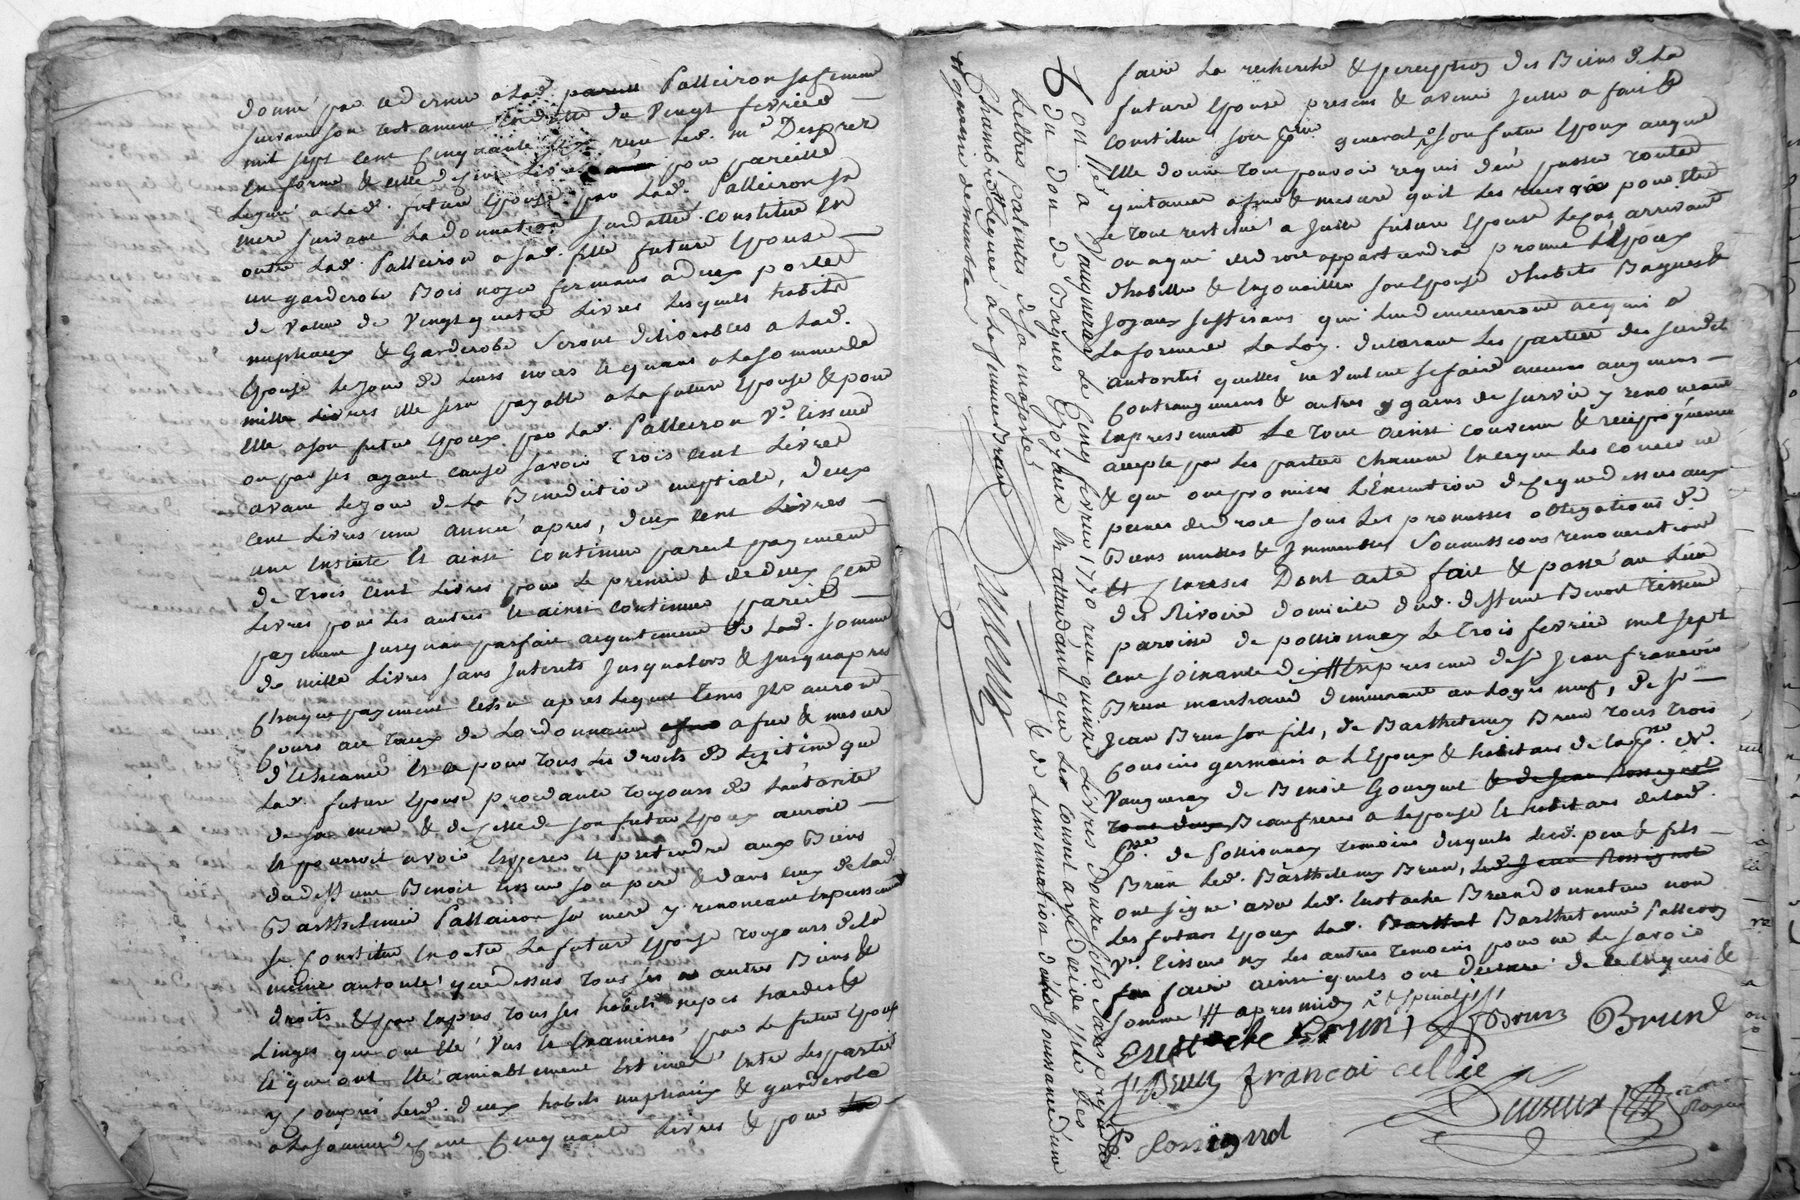 donné par ce dernier a lad. Palleiron sa femme
suivant son testament du vingt fevrier
mil sept cent cinquante six receu led. me Desprez
en forme & celle de livres pour pareille
legué a lad. future Epouse par lad. Palleiron sa
mere suivant la donnation susdattée constitue en
outre lad. Palleiron a sad. fille future Epouse
un garderobe Bois noyer fermant a deux portes
de valeur de vingt quatre Livres Lesquels habits
nuptiaux & Garderobe seront delivrables a lad.
Epouse le jour de leurs noces et quant a la somme de
mille Livres elle sera payable a la future Epouse & pour
elle a son futur Epoux par lad. Palleiron ve Tisseur
ou par ses ayant cause savoir trois cent Livres
avant le jour de la Benediction nuptiale, deux
cent Livres une année apres, deux cent Livres
une ensuite et ainsi continuer pareil payement
de trois cent Livres pour le premier & de deux cent
Livres pour les autres et ainsi continuer pareil
payement jusquau parfait acquittement de lad. somme
de mille Livres sans Interets jusqualors & jusquapres
chaque payement echu apres lequel tems ils auront
cours au taux de Lordonnance a fur & mesure
d'Echeance et ce pour tous les droits de Legitime que
lad. future Epouse procedante toujours de lautorité
de sa mere & de celle de son futur Epoux auroit
et pourroit avoir esperer et pretendre aux Biens
dud. deffunt Benoit Tisseur son pere & dans ceux de lad.
Barthelemie Palleiron sa mere y renoncant expressement
se constitue en outre la future Epouse toujours de la
même autorité que dessus tous ses autres Biens &
droits & par exprès tous ses habits negoces hardes &
Linges qui ont été vus et Examinés par le futur Epoux
et qui ont été amiablement Estimés entre les parties
y compris lesd. deux habits nuptiaux & garderobe
a la somme de cent cinquante Livres & pour
faire la recherche & perception des Biens de la
future Epouse presens & avenir elle a fait &
constitué son general son futur Epoux auquel
elle donne tout pouvoir requis d'en passer toutes
quitances a fur & mesure quil les recevra pour etre
le tout restitué a ladite future Epouse le cas arrivant
ou a qui de droit appartiendra promet l'Epoux
d'habiller & enjouailler son Epouse d'habits Bagues &
Joyaux suffisans qui lui demeureront acquis a
la forme de la Loy. declarant les parties de susdites
autorités quelles ne veulent se faire aucuns augmens
contraugmens & autres gains de survie y renoncant
expressement Le tout ainsi convenu & reciproquement
accepté par les parties chacune en ce qui les concerne
& que ont promis L'Execution de ce que dessus aux
peines de droit sous les promesses obligations de
Biens meubles & Immeubles soumissions renonciations
et clauses Dont acte fait & passé au Lieu
des Rivoire domicile dud. deffunt Benoit Tisseur
paroisse de pollionnay Le trois fevrier mil sept
cent soixante dix en presence de sr Jean francois
Brun marchand demeurant au Logis neuf, de sr
Jean Brun son fils, de Barthelemy Brun tous trois
cousins germains a l'Epoux & habitans de la psse de
Vaugneray de Benoit Gourgout & de Jean Rossignol
tous deux Beaufreres a lepouse et habitans de lad.
psse de Pollionnay temoins desquels lesd. pere & fils
Brun led. Barthelemy Brun, led. Jean Rossignol
ont signé avec led. Eustache Brun donnateur non
les futurs Epoux lad. Barthelemie Palleron
ve Tisseur ny les autres temoins pour ne le savoir
faire ainsi quils ont declaré de ce enquis &
sommés apres midy
Eustache Brun J Brun Brun
J Brun francoi cellie
Rossignol
Con.lé a Vaugneray Le cinq fevrier 1770 receu quinze Livres douze sols sans prejudice
du don de Bagues & Joyaux en attendant que Le Conseil aye decidé s'ils ont des
Lettres patentes de sa majesté & de Linsinuation d'une Joussance d'une
Chambre Leguée a la femme Brun